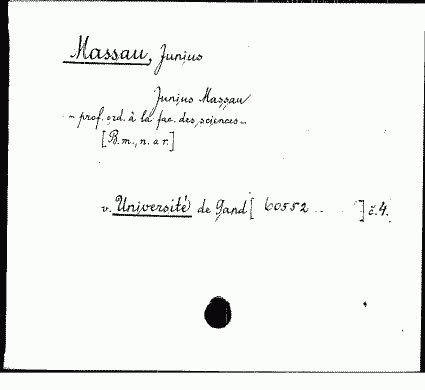 Massau, Junius
Junius Massau
- prof. ord. à la fac. des sciences -
[B. m., n. a r.]
v. Université de Gand [ 60552 ] č. 4.